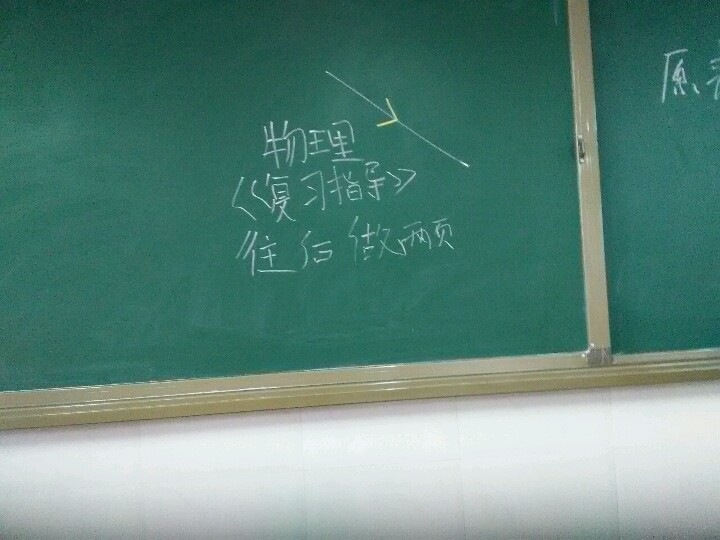 物理
《复习指导》
往后做两页
原